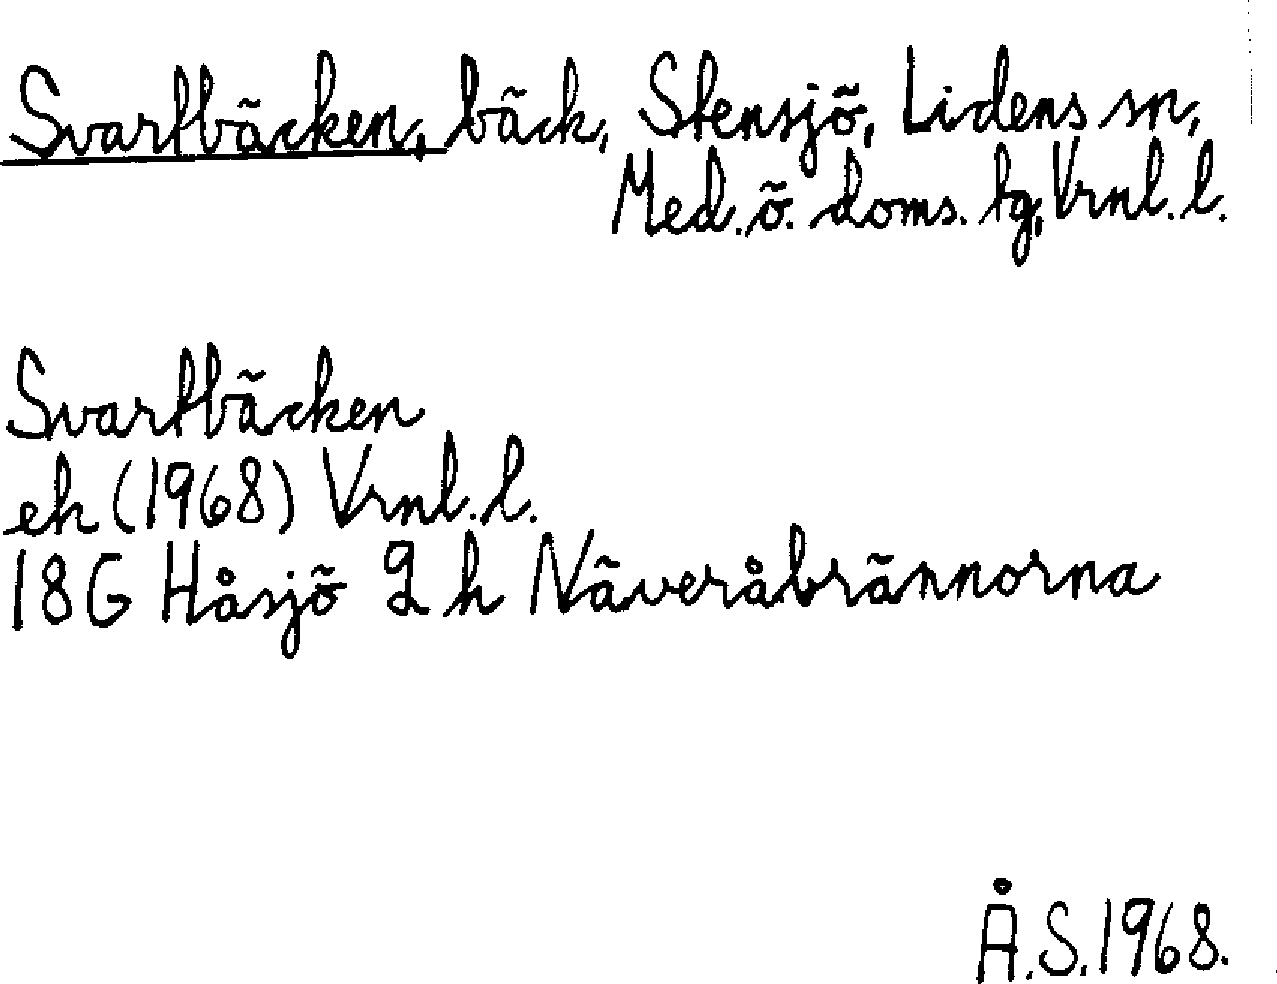 Svartbäcken, bäck, Stensjö, Lidens sn,
Med. ö. doms. lg, Vrnl. l.
Svartbäcken
ek (1968) Vrnl. l.
18G Håsjö 2 h Näveråbrännorna
Å.S. 1968.